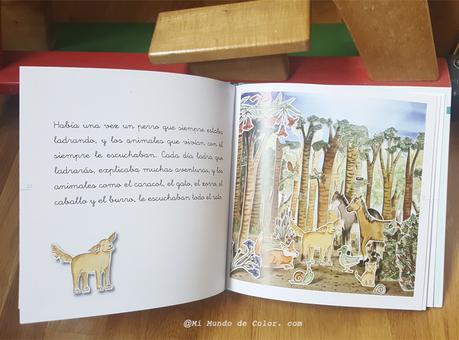 Había una vez un perro que siempre estaba
ladrando, y los animales que vivían con él
siempre le escuchaban. Cada día ladra que
ladrarás, explicaba muchas aventuras, y los
animales como el caracol, el gato, el zorro, el
caballo y el burro, le escuchaban todo el rato.
@Mi Mundo de Color. com